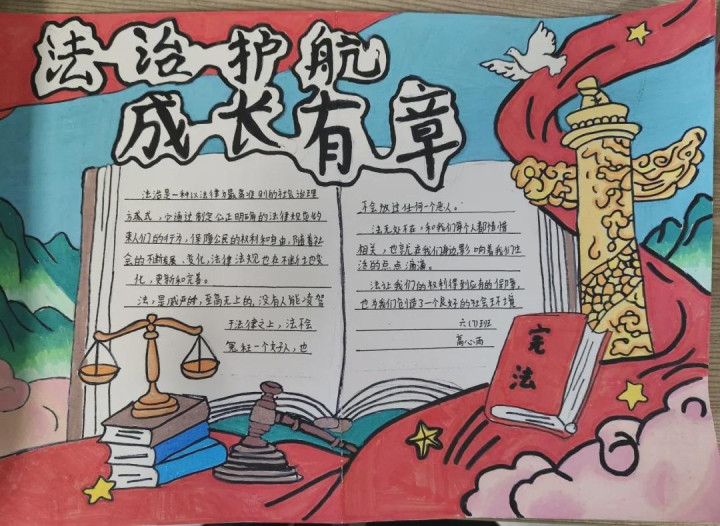 法治护航
成长有章
法治是一种以法律为最高准则的社会治理
方式，它通过制定公正明确的法律规范约
束人们的行为，保障公民的权利和自由，随着社
会的不断发展、变化，法律法规也在不断地变
化、更新和完善。
法，是威严的，至高无上的，没有人能凌驾
于法律之上，法不会
冤枉一个好人，也
不会放过任何一个恶人。
法无处不在，和我们每个人都息息
相关，也就在我们身边，影响着我们生
活的点点滴滴。
法让我们的权利得到应有的保障，
也为我们创造了一个良好的社会环境
六(7)班
高心
宪
法